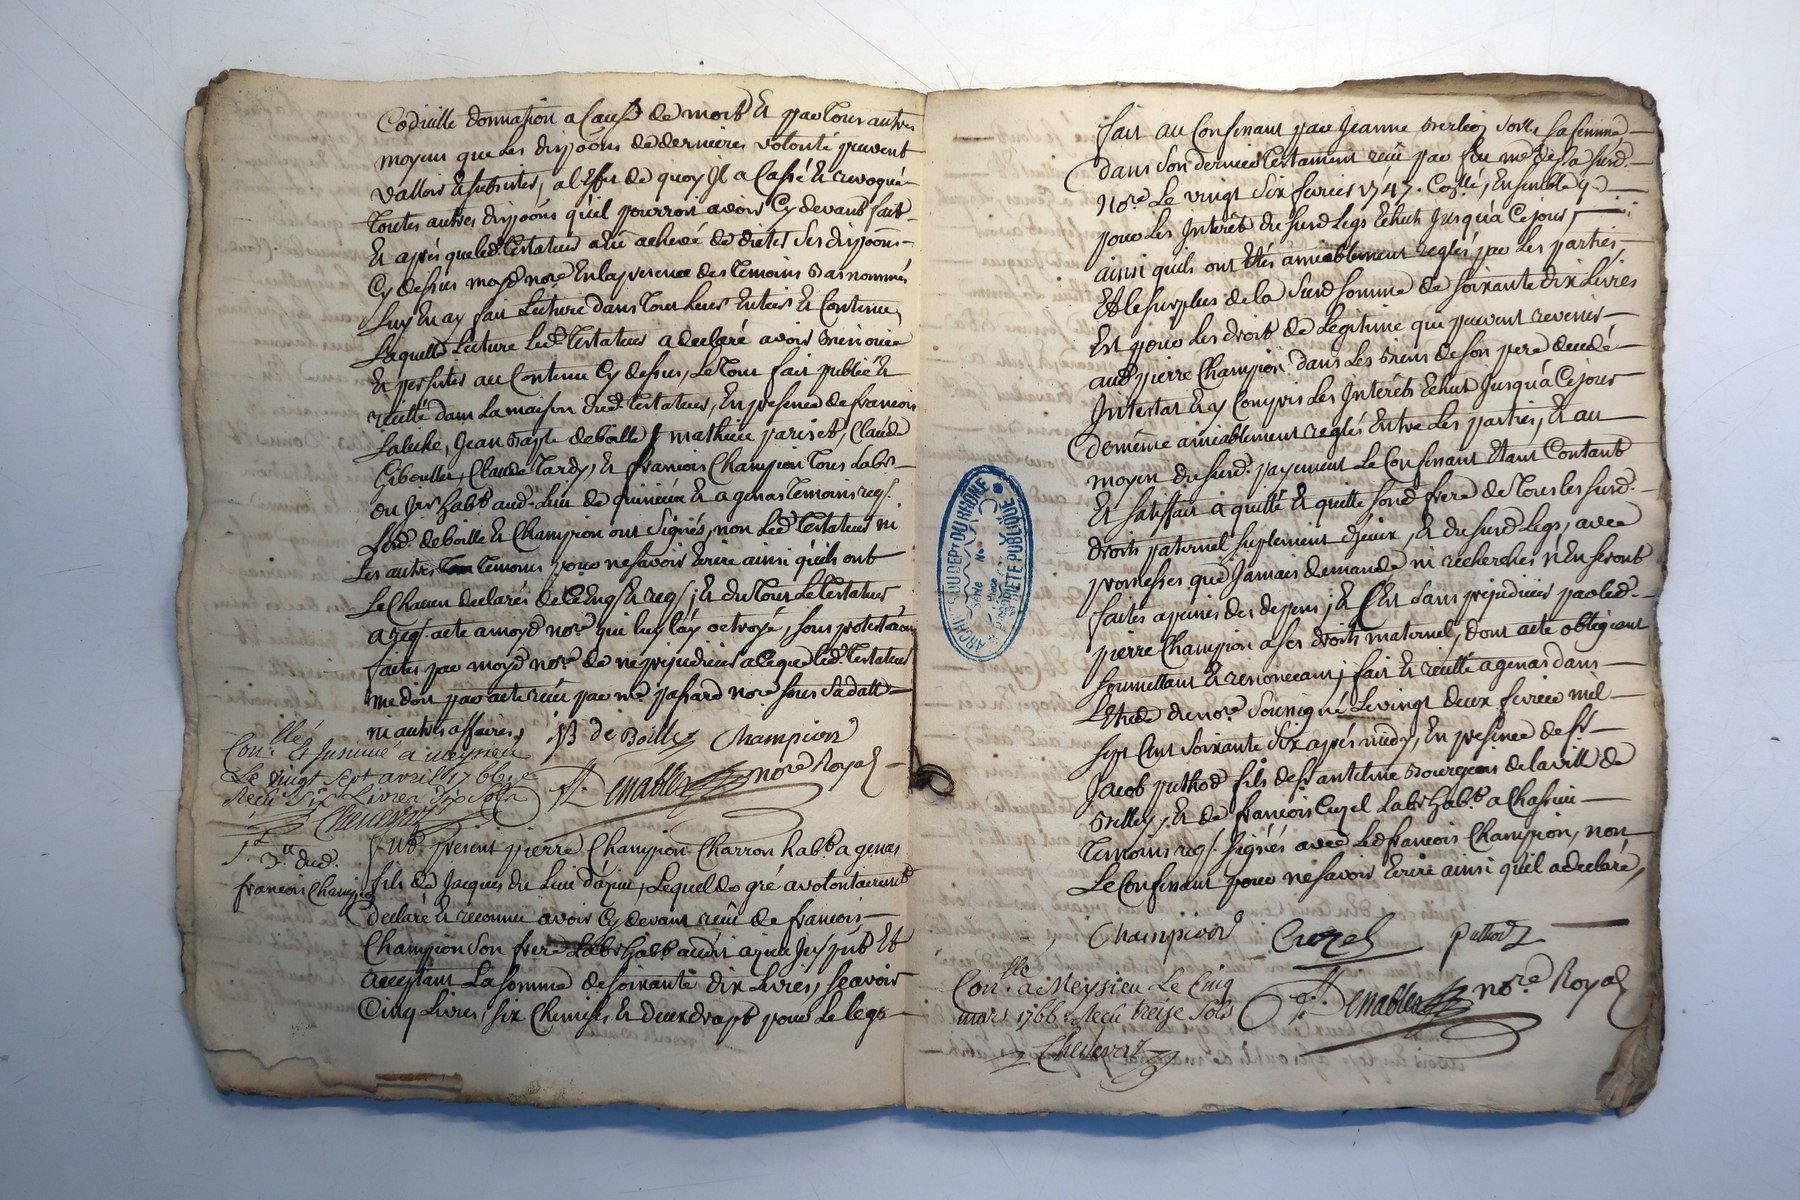 Codicille donnation a cause de mort Et par tous autres
moyens que Les dispoõns de dernieres volonté peuvent
valloir & subsister, a l'Effet de quoy Jl a Cassé Et revoqué
toutes autres dispoõns qu'il pourroit avoir Cy devant fait
Et aprés que led. Testateur a eu achevé de dicter Ses dispoõns
Cy dessus moyd nore En la presence des Temoins Bas nommés
Luy En ay fait Lecture dans tout Leur Entier Et Contenu,
Laquelle Lecture Led. Testateur a declaré avoir
Et persister au Contenu Cy dessus, Le tout fait publié Et
recitté dans La maison dud. Testateur, En presence de francois
Jean Bapte deboille mathieu pariset, Claude
Giboullet, Claude Tardy, Et francois Champion tous Labrs
ou Jers habts aud. Lieu de Et a genas temoins reqs.
Lesd. deboille Et Champion ont Signés, non Led. Testateur ni
Les autres temoins pour ne savoir Ecrire ainsi qu'ils ont
Le Chacun declarés de Ce Enqs Et reqs; Et du tout Le Testateur
a reqs. acte a moyd nore qui luy l'ay octroyé, sous protestaõn
faites par moyd nore de ne prejudicier a Ce que led. Testateur
me doit par acte reçu par me pasard nore sous Sa datte
ni autres affaires,
JB de Boille Champion
Denables nore Royal
Conllé Et Insinué a meyzieu
Le vingt Sept avril 1766
Reçu Six Livres dix Sols
Chenevaz
francois Champion
fut present pierre Champion Charron habt a genas
fils de Jacques du Lieu d'azieu, Lequel de gré a volontairement
declaré Et reconnu avoir Cy devant reçu de francois
Champion Son frere Labr habt audit azieu Jcy pnt Et
acceptant La somme de soixante dix Livres, sçavoir
Cinq Livres, six Chemises Et deux draps pour Le legs
fait au Confessant par Jeanne Sa femme
dans Son dernier testament reçu par feu me
Nore Le vingt Six fevrier 1747. Conllé, Ensemble
pour Les Jnterêt du susd Legs Echus Jusqu'a Ce jour,
ainsi quils ont Etés amiablement reglés par Les parties,
Et le surplus de la Susd Somme de soixante dix Livres
Est pour Les droits de Legitime qui peuvent revenir
aud pierre Champion dans Les Biens de son pere decedé
Jntestat En ay Compris Les Jnterêts Echus Jusqu'a Ce jour
de même amiablement reglés Entre Les parties, Et au
moyen du susd. payement Le Confessant Etant Contant
Et satisfait a quitté Et quitte sond frere de tous les susd.
droits paternel suplement d'jceux, Et du susd Legs, avec
promesses que Jamais demande ni recherches n'En seront
faites a peines des depens; Et C'Est Sans prejudicier par led.
pierre Champion a ses droits maternel, dont acte obligeant
soumettant Et renonceant, fait Et recitté a genas dans
L'Etude du nore Soussigné Le vingt deux fevrier mil
sept Cent Soixante Six aprés midy, En presence de sr
Jacob puthod fils de sr antelme Bourgeois de la ville de
Belley, Et de francois Cuzel Labr habt a Chassieu
temoins reqs. Signés avec Led francois Champion, non
Le Confessant pour ne savoir Ecrire ainsi qu'il a declaré,
Champion Cuzel puthod
Denables nore Royal
Conllé a Meyzieu Le Cinq
mars 1766 Reçu treize Sols
Chenevaz
ARCHIVES DU DEPT DU RHÔNE
PROPRIETE PUBLIQUE
Série
No